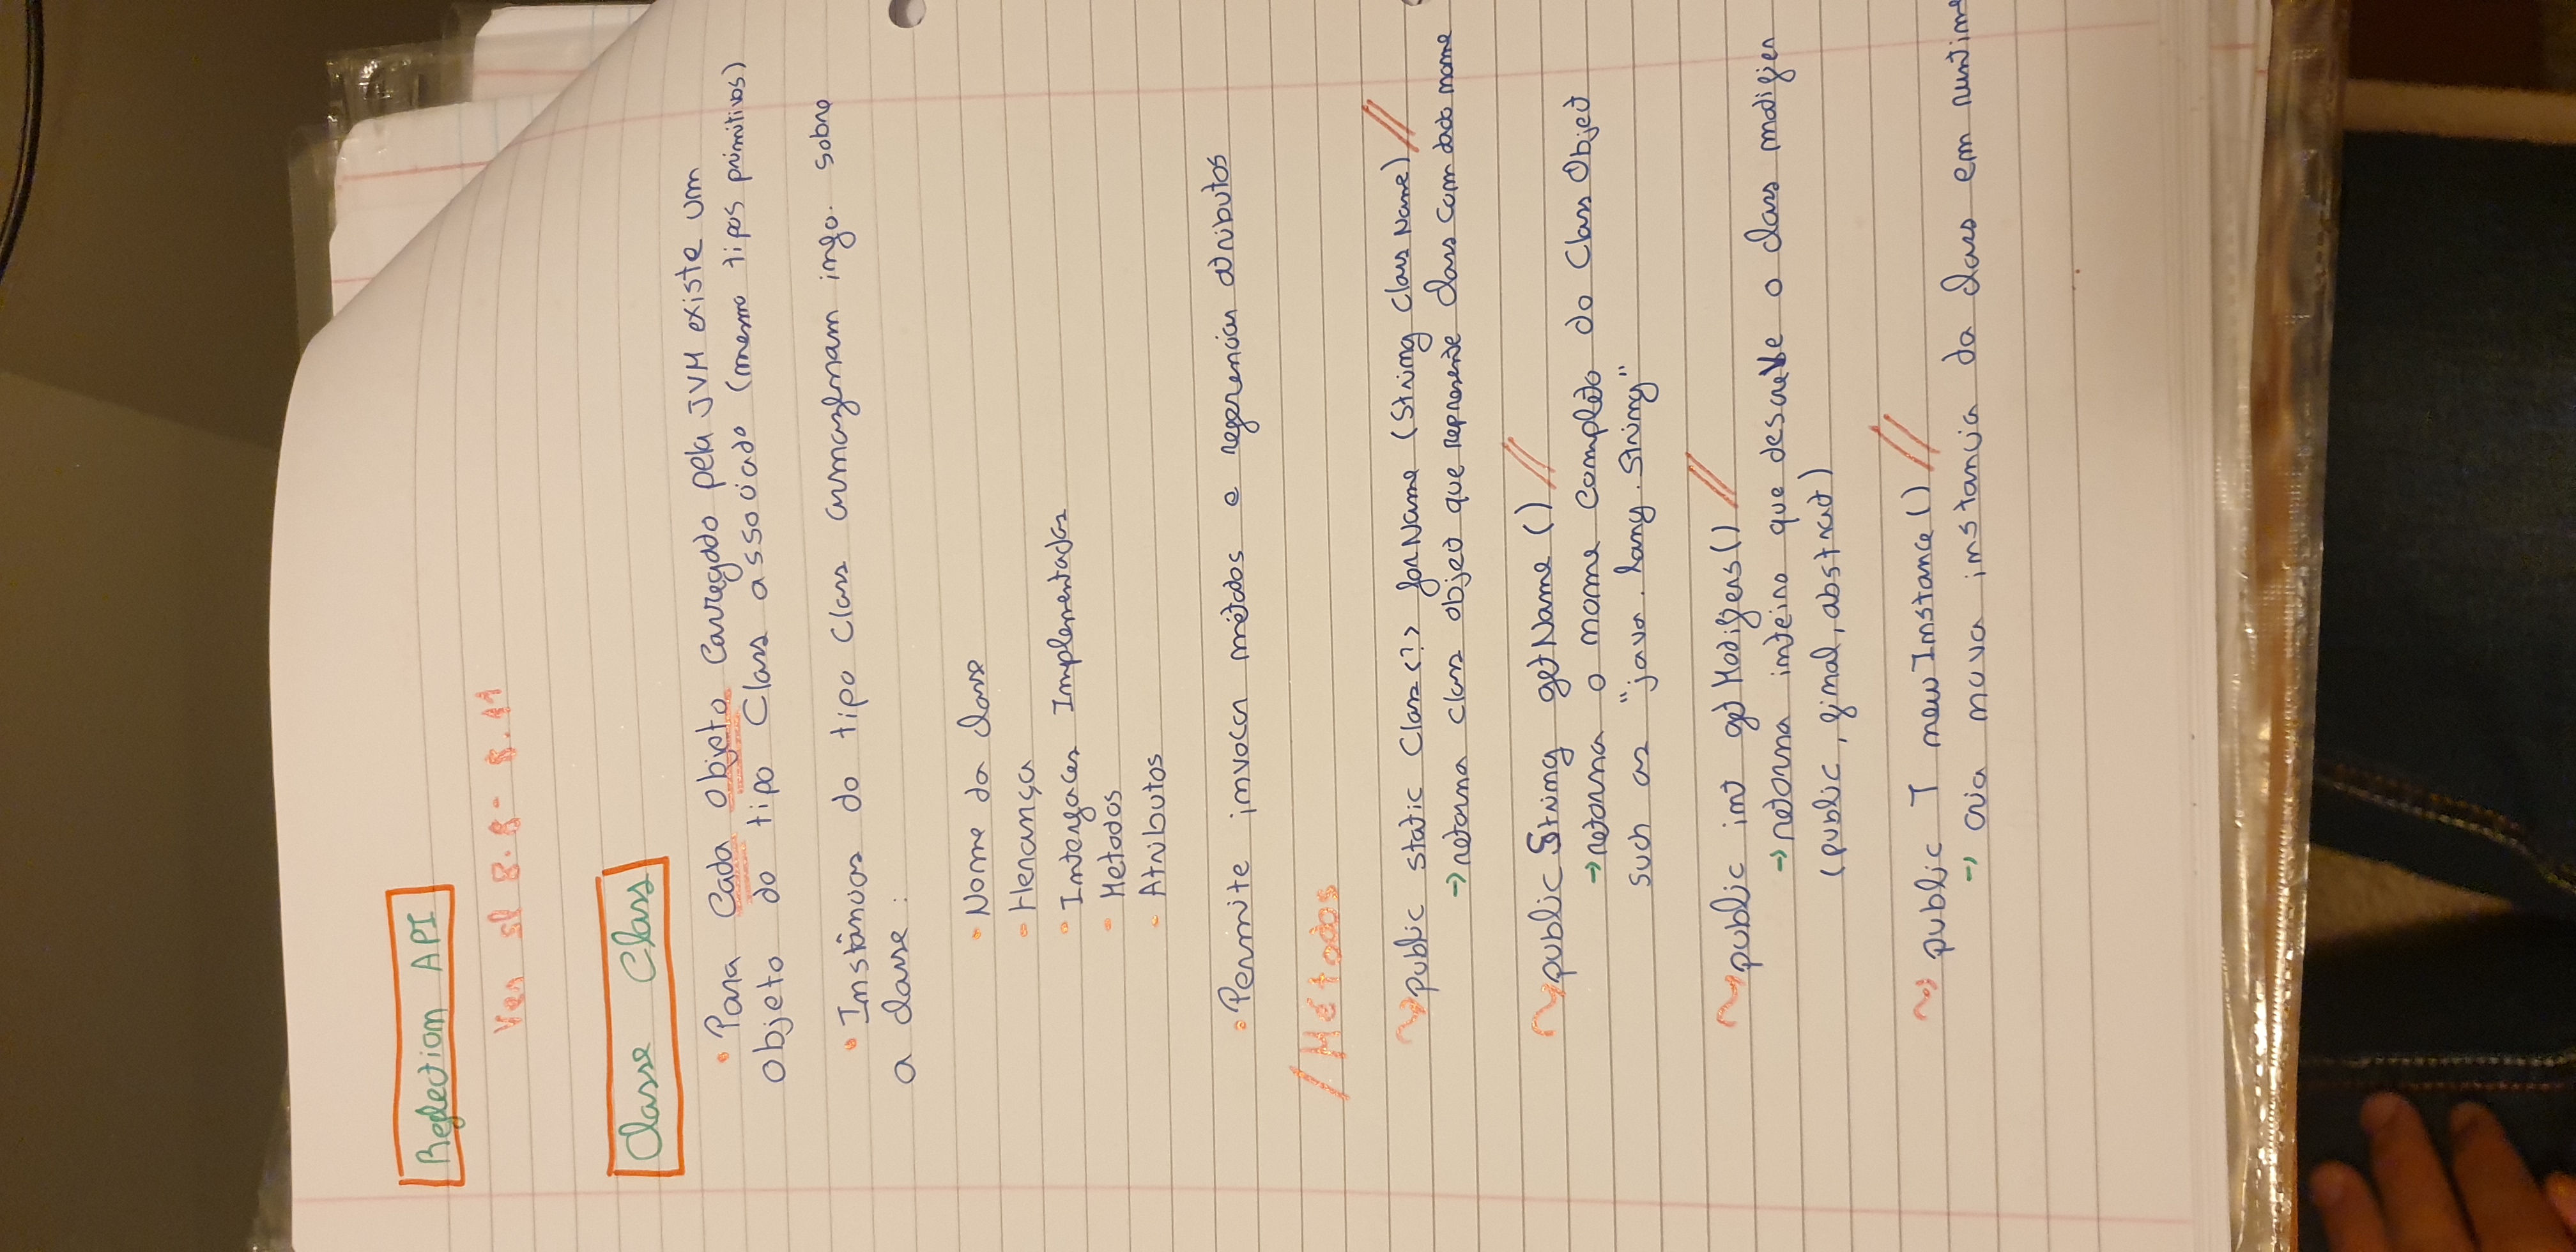 Reflection API
Ver sl 8.8 - 8.11
Classe Class
• Para cada objeto carregado pela JVM existe um
objeto do tipo Class associado (mesmo tipos primitivos)
• Instâncias do tipo Class armazenam info. sobre
a classe :
• Nome da classe
- Herança
• Interfaces Implementadas
- Metodos
- Atributos
• Permite invocar métodos e referenciar atributos
/Métodos
~> public static Class<?> forName (String ClassName) //
→ retorna class object que represente class com dado nome
~> public String getName () //
→ retorna o nome completo do Class Object
such as "java.lang.String"
~> public int getModifiers() //
→ retorna inteiro que descreve o class modifier
(public, final, abstract)
~> public T newInstance() //
→ cria nova instancia da class em runtime